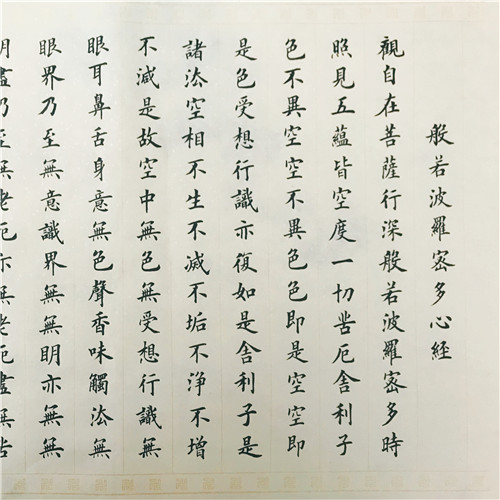 般若波羅密多心経
觀自在菩薩行深般若波羅密多時
照見五蘊皆空度一切苦厄舎利子
色不異空空不異色色即是空空即
是色受想行識亦復如是舎利子是
諸法空相不生不滅不垢不淨不增
不減是故空中無色無受想行識無
眼耳鼻舌身意無色聲香味觸法無
眼界乃至無意識界無無明亦無無
明盡乃至無老死亦無老死盡無苦